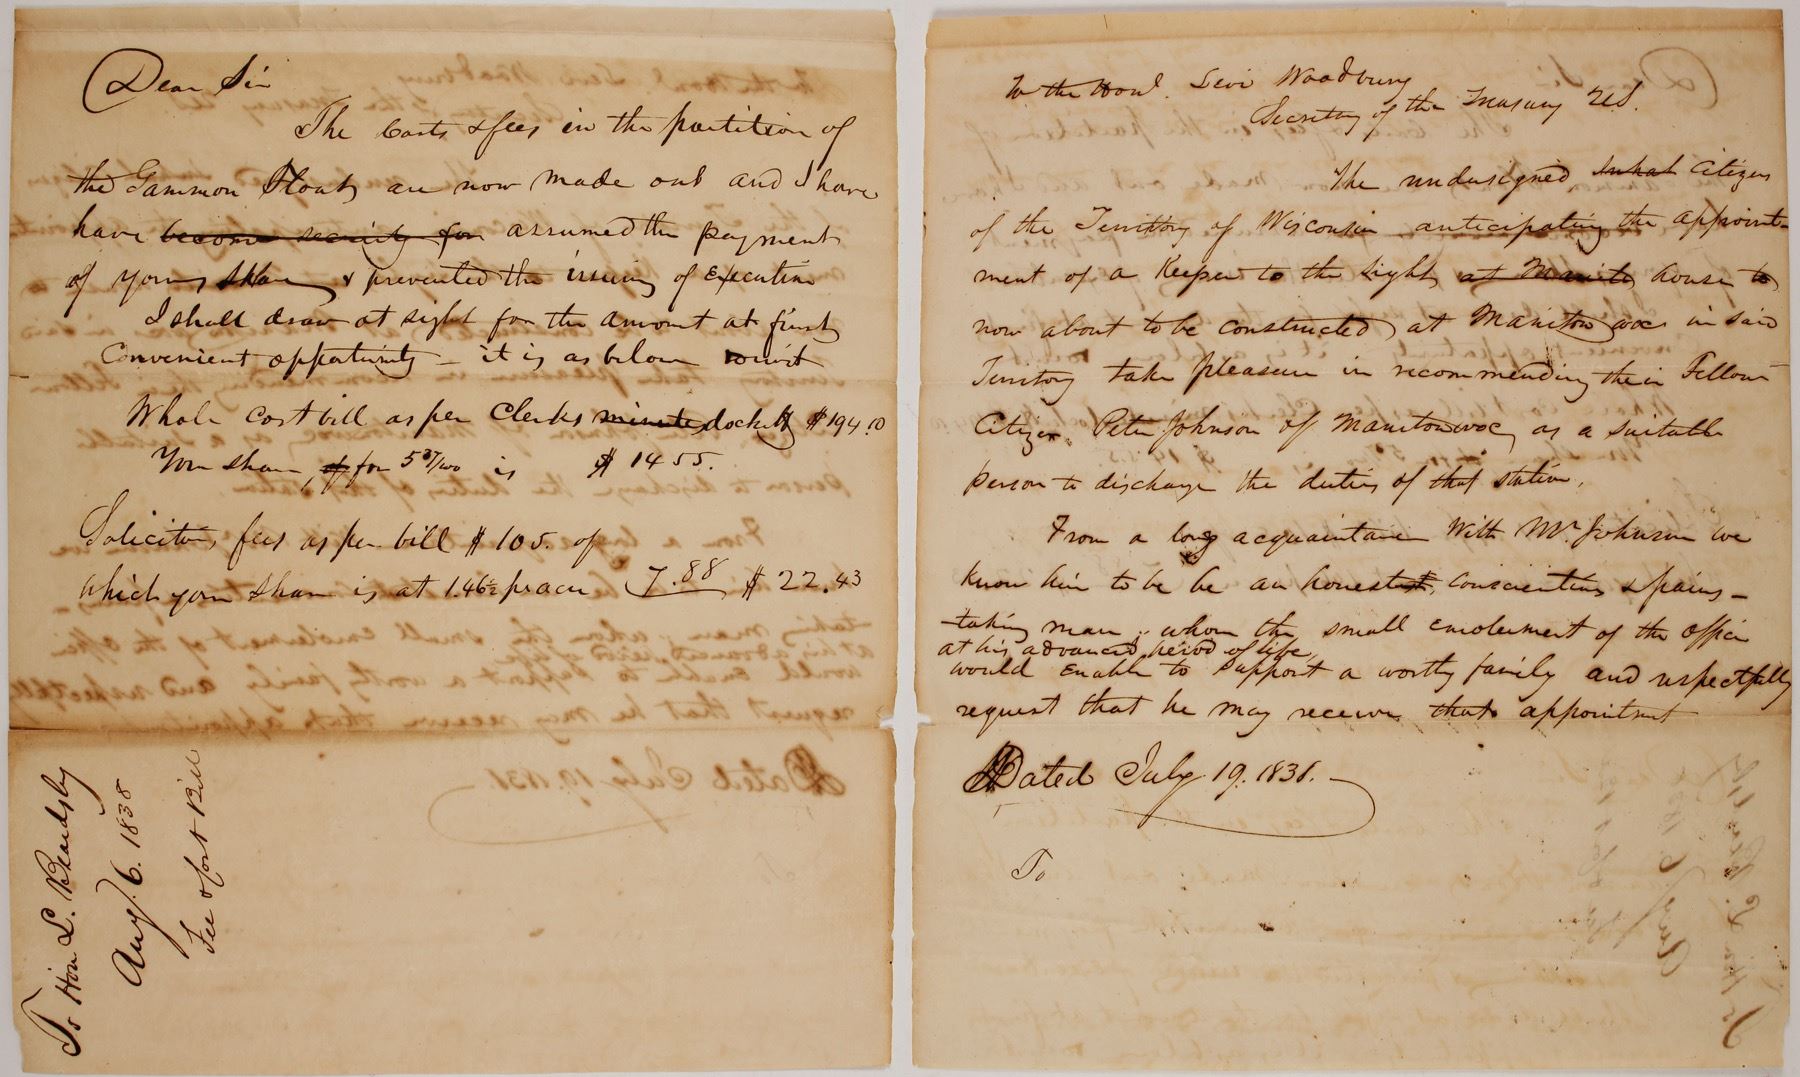 Dear Sir
The Costs & fees in the partition of
the Gammon Float are now made out and I have
have become security for assumed the payment
of your share & prevented the issuing of Execution
I shall draw at sight for the amount at first
Convenient opportunity – it is as below to wit
Whole Cost bill as per Clerks minutes docket $194.10
Your share, of for 5 37/100 is $ 14 55.
Solicitors fees as per bill $ 105. of
which your share is at 1.46½ pr acre 7.88 $ 22.43
To Hon L. Beardsley
Aug. 6. 1838
Fee & Cost Bill
To the Honl. Levi Woodbury
Secretary of the Treasury U.S.
The undersigned Inhab Citizens
of the Territory of Wisconsin anticipating the appoint-
ment of a Keeper to the Light at Manito house to
now about to be constructed at Manitowoc in said
Territory take pleasure in recommending their Fellow
Citizen Peter Johnson of Manitowoc as a suitable
person to discharge the duties of that station.
From a long acquaintance With Mr. Johnson we
know him to be be an honest, conscientious & pains-
taking man, whom the small emolument of the office
at his advanced period of life
would enable to support a worthy family and respectfully
request that he may receive that appointment
Dated July 19. 1838.
To